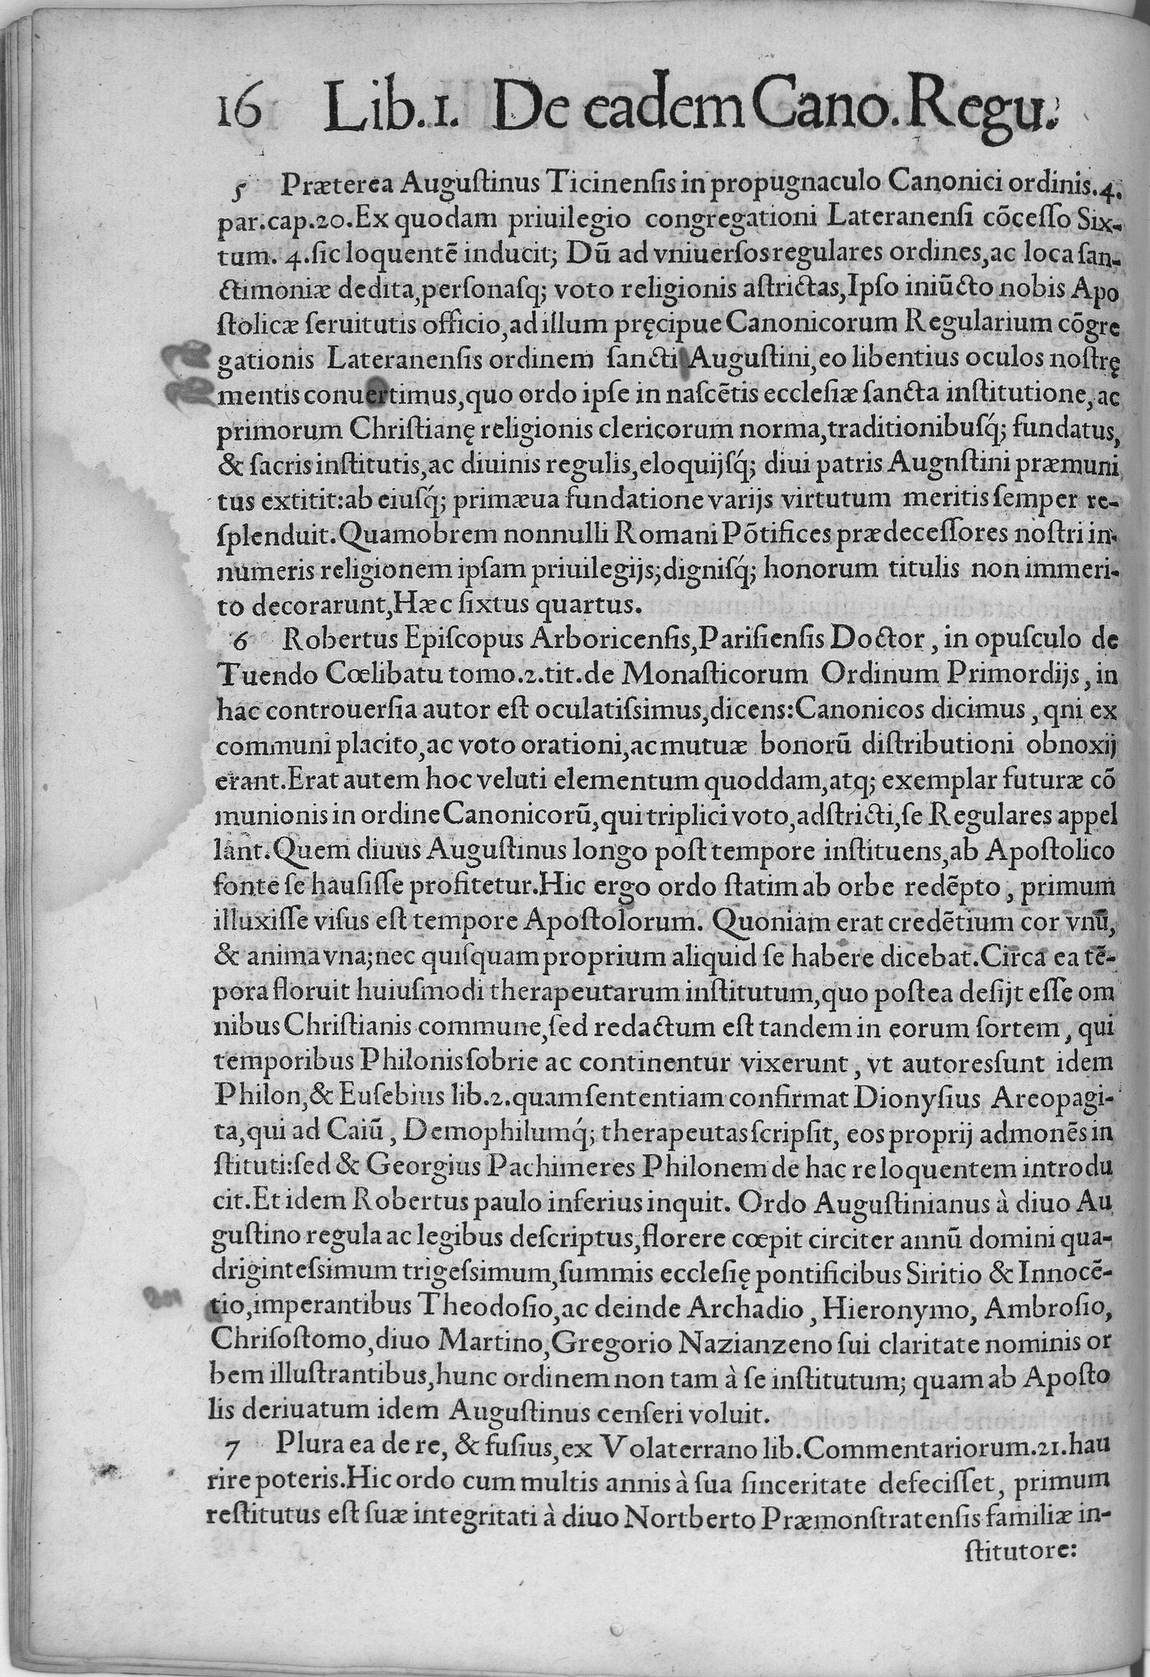 16 Lib.1. De eadem Cano. Regu.
5 Præterea Auguſtinus Ticinenſis in propugnaculo Canonici ordinis.4.
par.cap.20.Ex quodam priuilegio congregationi Lateranenſi cõceſſo Six-
tum. 4.ſic loquentẽ inducit; Dũ ad vniuerſos regulares ordines,ac loca ſan-
ctimoniæ dedita,perſonaſq; voto religionis aſtrictas,Ipſo iniũcto nobis Apo
ſtolicæ ſeruitutis officio,ad illum pręcipue Canonicorum Regularium cõgre
gationis Lateranenſis ordinem ſancti Auguſtini,eo libentius oculos noſtrę
mentis conuertimus,quo ordo ipſe in naſcẽtis eccleſiæ ſancta inſtitutione,ac
primorum Chriſtianę religionis clericorum norma,traditionibuſq́; fundatus,
& ſacris inſtitutis,ac diuinis regulis,eloquijſq́; diui patris Augnſtini præmuni
tus extitit:ab eiuſq́; primæua fundatione varijs virtutum meritis ſemper re-
ſplenduit.Quamobrem nonnulli Romani Põtifices prædeceſſores noſtri in-
numeris religionem ipſam priuilegijs;digniſq́; honorum titulis non immeri-
to decorarunt,Hæc ſixtus quartus.
6 Robertus Epiſcopus Arboricenſis,Pariſienſis Doctor, in opuſculo de
Tuendo Cœlibatu tomo.2.tit.de Monaſticorum Ordinum Primordijs, in
hac controuerſia autor eſt oculatiſsimus,dicens:Canonicos dicimus, qni ex
communi placito,ac voto orationi,ac mutuæ bonorũ diſtributioni obnoxij
erant.Erat autem hoc veluti elementum quoddam,atq; exemplar futuræ cõ
munionis in ordine Canonicorũ,qui triplici voto,adſtricti,ſe Regulares appel
lant.Quem diuus Auguſtinus longo poſt tempore inſtituens,ab Apoſtolico
fonte ſe hauſiſſe profitetur.Hic ergo ordo ſtatim ab orbe redẽpto, primum
illuxiſſe viſus eſt tempore Apoſtolorum. Quoniam erat credẽtium cor vnũ,
& anima vna;nec quiſquam proprium aliquid ſe habere dicebat.Circa ea tẽ-
pora floruit huiuſmodi therapeutarum inſtitutum,quo poſtea deſijt eſſe om
nibus Chriſtianis commune,ſed redactum eſt tandem in eorum ſortem, qui
temporibus Philonis ſobrie ac continentur vixerunt, vt autores ſunt idem
Philon,& Euſebius lib.2.quam ſententiam confirmat Dionyſius Areopagi-
ta,qui ad Caiũ, Demophilumq́; therapeutas ſcripſit, eos proprij admonẽs in
ſtituti:ſed & Georgius Pachimeres Philonem de hac re loquentem introdu
cit.Et idem Robertus paulo inferius inquit. Ordo Auguſtinianus à diuo Au
guſtino regula ac legibus deſcriptus,florere cœpit circiter annũ domini qua-
driginteſsimum trigeſsimum,ſummis eccleſię pontificibus Siritio & Innocẽ-
tio,imperantibus Theodoſio,ac deinde Archadio, Hieronymo, Ambroſio,
Chriſoſtomo,diuo Martino,Gregorio Nazianzeno ſui claritate nominis or
bem illuſtrantibus,hunc ordinem non tam à ſe inſtitutum; quam ab Apoſto
lis deriuatum idem Auguſtinus cenſeri voluit.
7 Plura ea de re, & fuſius,ex Volaterrano lib.Commentariorum.21.hau
rire poteris.Hic ordo cum multis annis à ſua ſinceritate defeciſſet, primum
reſtitutus eſt ſuæ integritati à diuo Nortberto Præmonſtratenſis familiæ in-
ſtitutore: